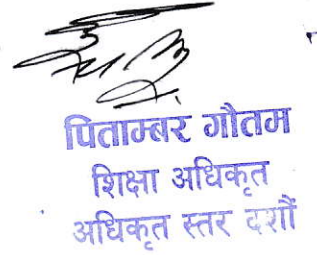 पिताम्बर गौतम
शिक्षा अधिकृत
अधिकृत स्तर दशौं